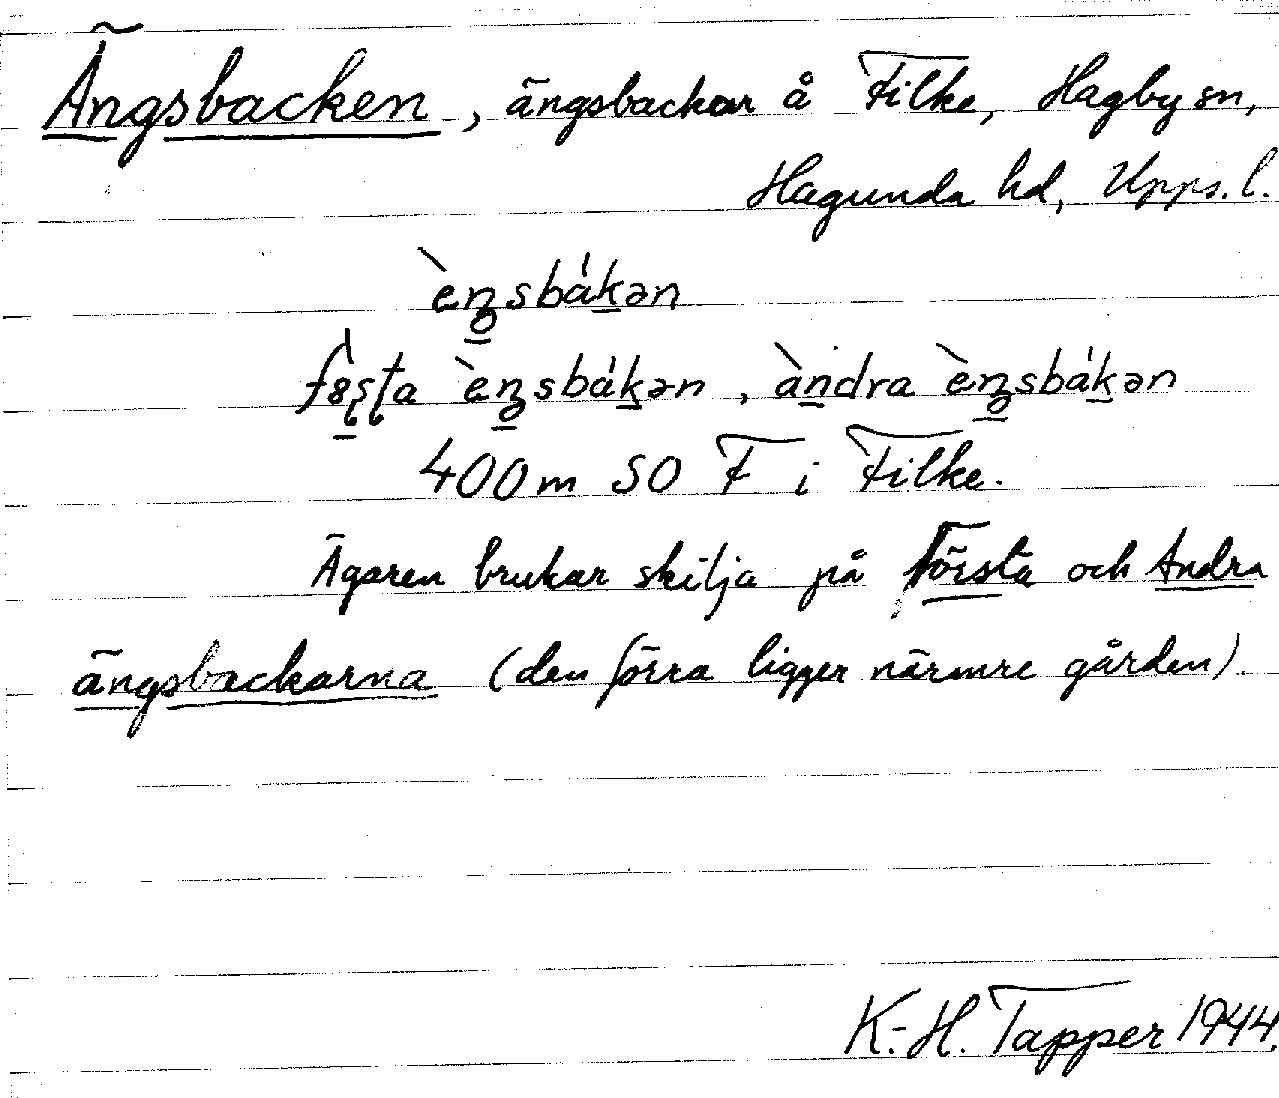 Ängsbacken, ängsbackar å Filke, Hagby sn,
Hagunda hd, Upps. l.
èŋsbák̲ən
fø̀ʂʈa èŋsbák̲ən, àn̲dra èŋsbák̲ən
400 m SO F i Filke.
Ägaren brukar skilja på Första och Andra
ängsbackarna (den förra ligger närmre gården).
K.-H. Tapper 1944.